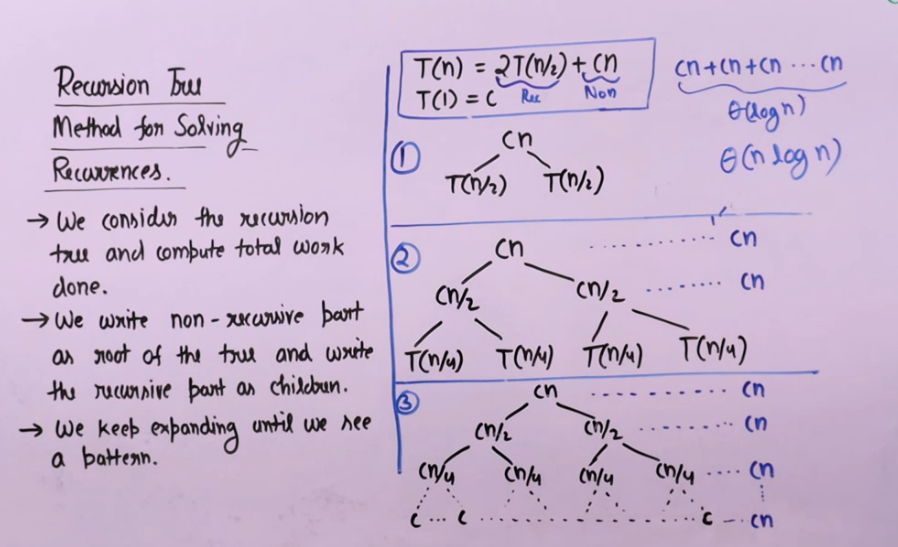 Recursion Tree
Method for Solving
Recurrences.
→ We consider the recursion
tree and compute total work
done.
→ We write non-recursive part
as root of the tree and write
the recursive part as children.
→ We keep expanding until we see
a pattern.
T(n) = 2T(n/2) + cn
T(1) = C
Rec
Non
cn+cn+cn ... cn
θ(logn)
θ(n logn)
1
cn
T(n/2) T(n/2)
2
cn ......... cn
cn/2 cn/2 ........ cn
T(n/4) T(n/4) T(n/4) T(n/4)
3
cn ......... cn
cn/2 cn/2 ........ cn
cn/4 cn/4 cn/4 cn/4 .... cn
c ... c ......... c ... cn